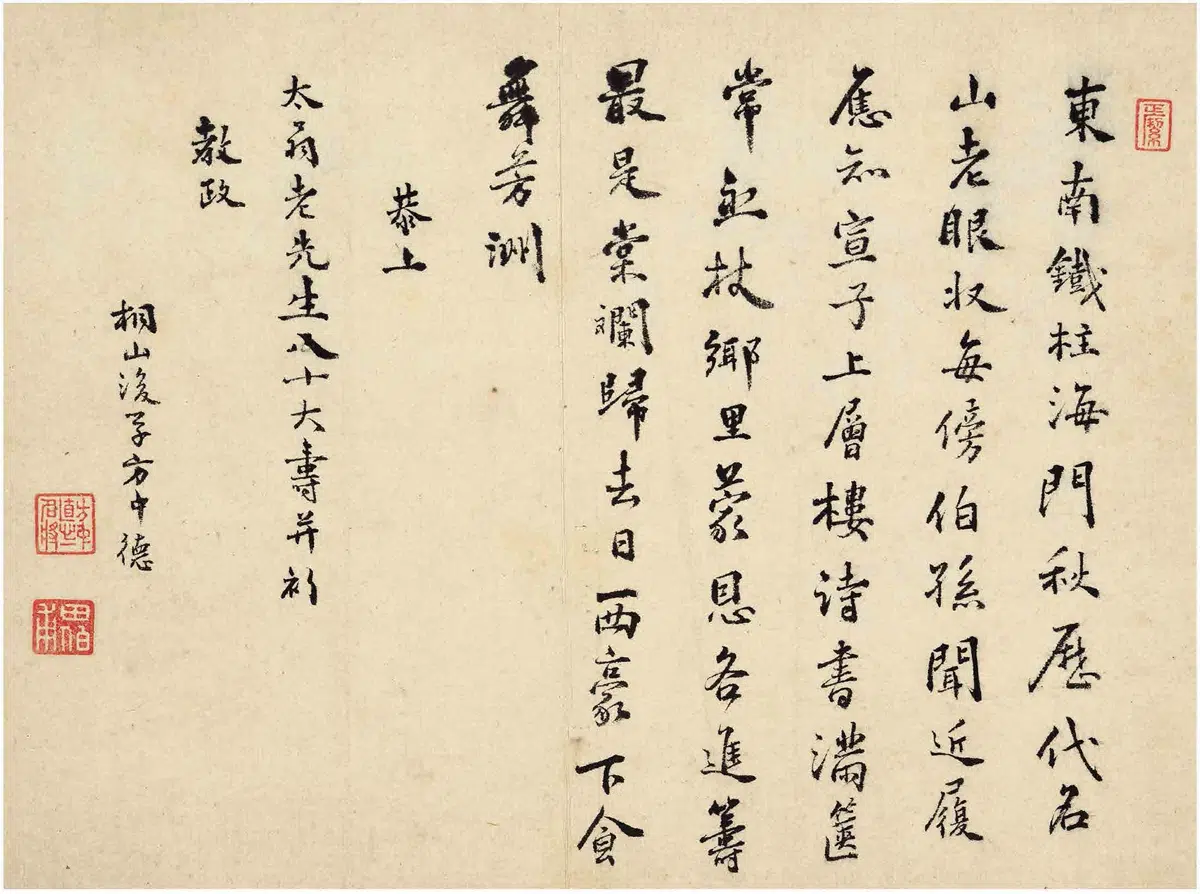 東南鐵柱海門秋歷代名
山老眼收每傍伯孫聞近履
應知宣子上層樓詩書滿篋
常並杖鄉里蒙恩各進籌
最是棠斕歸去日西豪下食
舞芳洲
恭上
太翁老先生八十大壽并祈
教政
桐山後學方中德